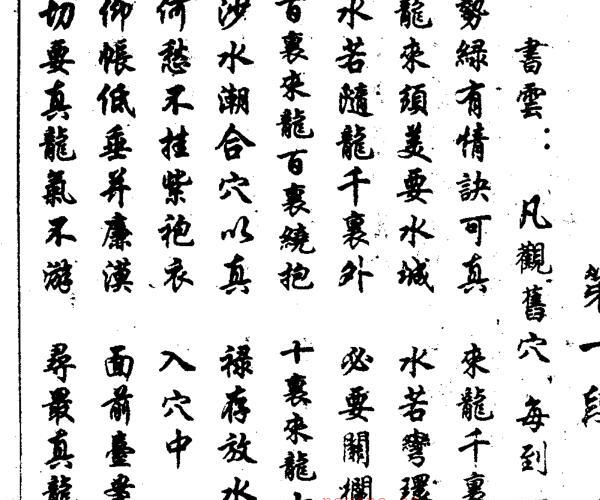 第一段
書雲：凡觀舊穴、每到
勢緑有情訣可真　來龍千裏
龍來須美要水城　水若彎環
水若隨龍千裏外　必要關攔
百裏來龍百裏繞抱　十裏來龍
沙水潮合穴以真　禄存放水
何愁不挂紫袍衣　入穴中
仰帳低垂并廉漠　面前臺
切要真龍氣不游　尋最真龍